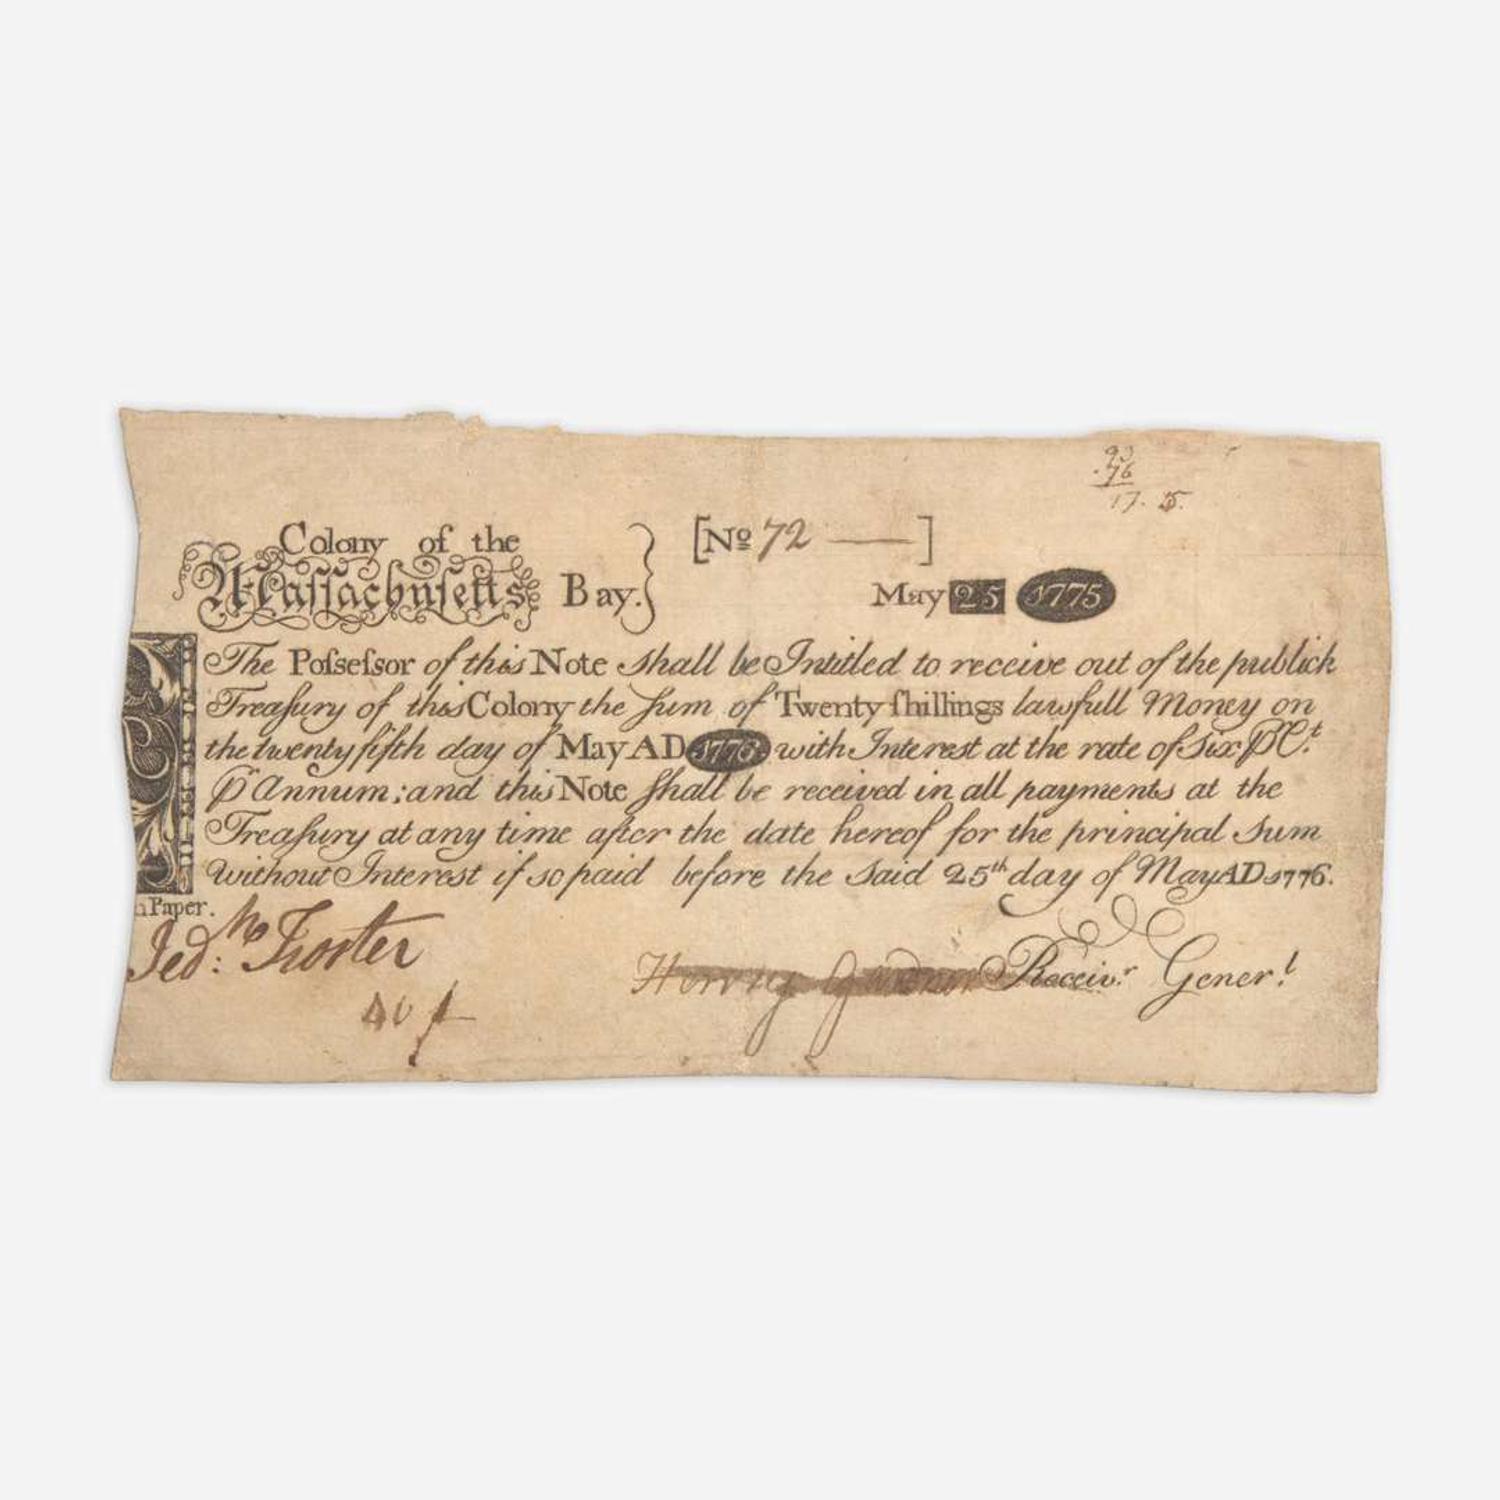 93
76
17. 5.
Colony of the
[No 72 —]
Maſſachuſetts Bay.}
May 25 1775
The Poſseſsor of this Note shall be Intitled to receive out of the publick
Treaſury of this Colony the ſum of Twenty ſhillings lawfull Money on
the twenty fifth day of May AD 1776. with Interest at the rate of Six ℘ Ct.
℘ Annum; and this Note ſhall be received in all payments at the
Treaſury at any time after the date hereof for the principal Sum
without Interest if so paid before the Said 25th day of May AD 1776.
n Paper.
Jedh: Foster
Henry Gardner Receivr Generl.